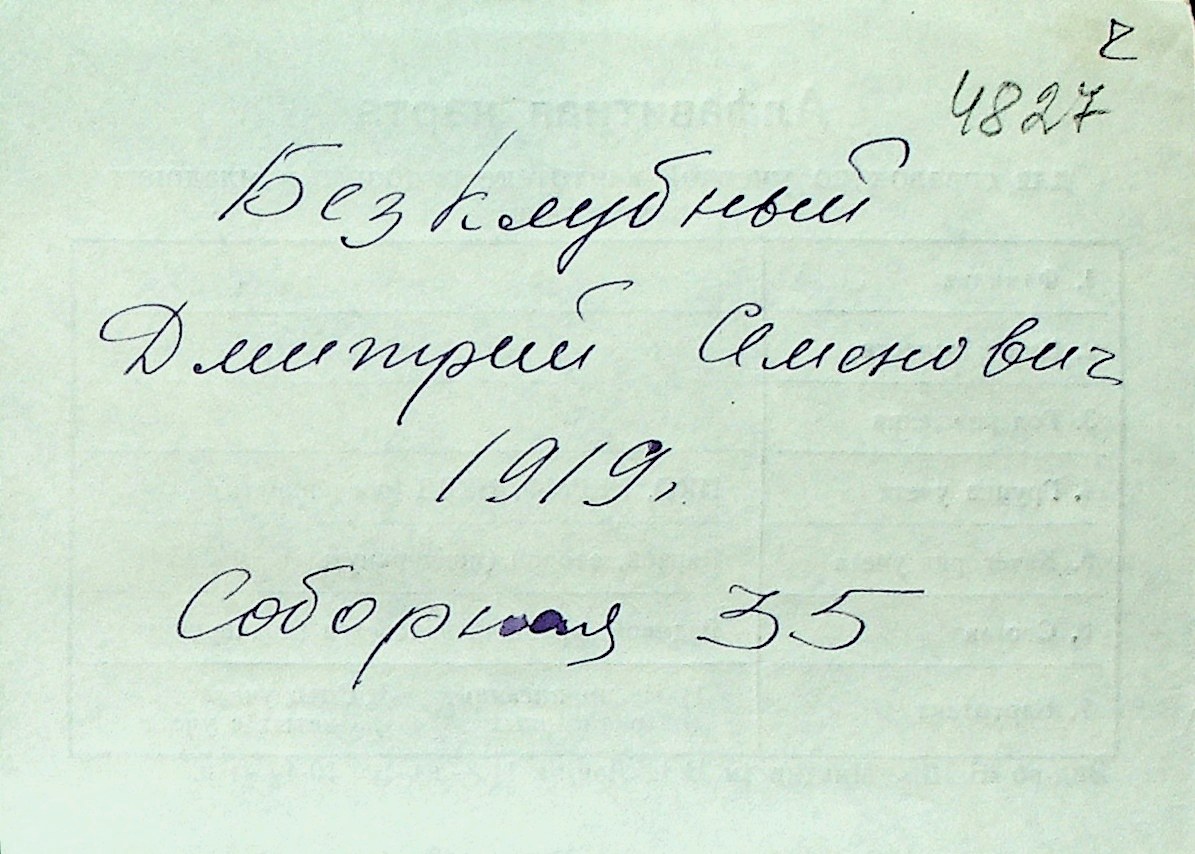 ч
4827
Безклубный
Дмитрий Семенович
1919г.
Соборная 35